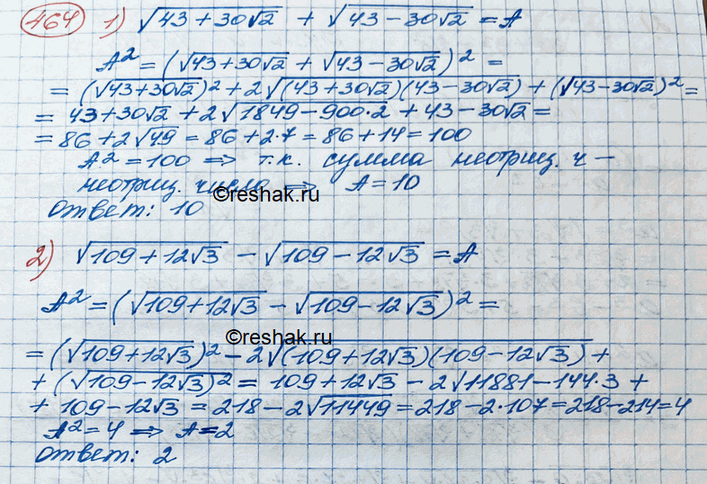 464 1) √43+30√2 + √43-30√2 = A
A² = (√43+30√2 + √43-30√2)² =
= (√43+30√2)² + 2√(43+30√2)(43-30√2) + (√43-30√2)² =
= 43+30√2 + 2√1849-900·2 + 43-30√2 =
= 86+2√49 = 86+2·7 = 86+14 = 100
A² = 100 ⇒ т.к. сумма неотриц. ч-
неотриц. число ⇒ A = 10
©reshak.ru
Ответ: 10
2) √109+12√3 - √109-12√3 = A
A² = (√109+12√3 - √109-12√3)² =
©reshak.ru
= (√109+12√3)² - 2√(109+12√3)(109-12√3) +
+ (√109-12√3)² = 109+12√3 - 2√11881-144·3 +
+ 109-12√3 = 218-2√11449 = 218-2·107 = 218-214 = 4
A² = 4 ⇒ A = 2
Ответ: 2